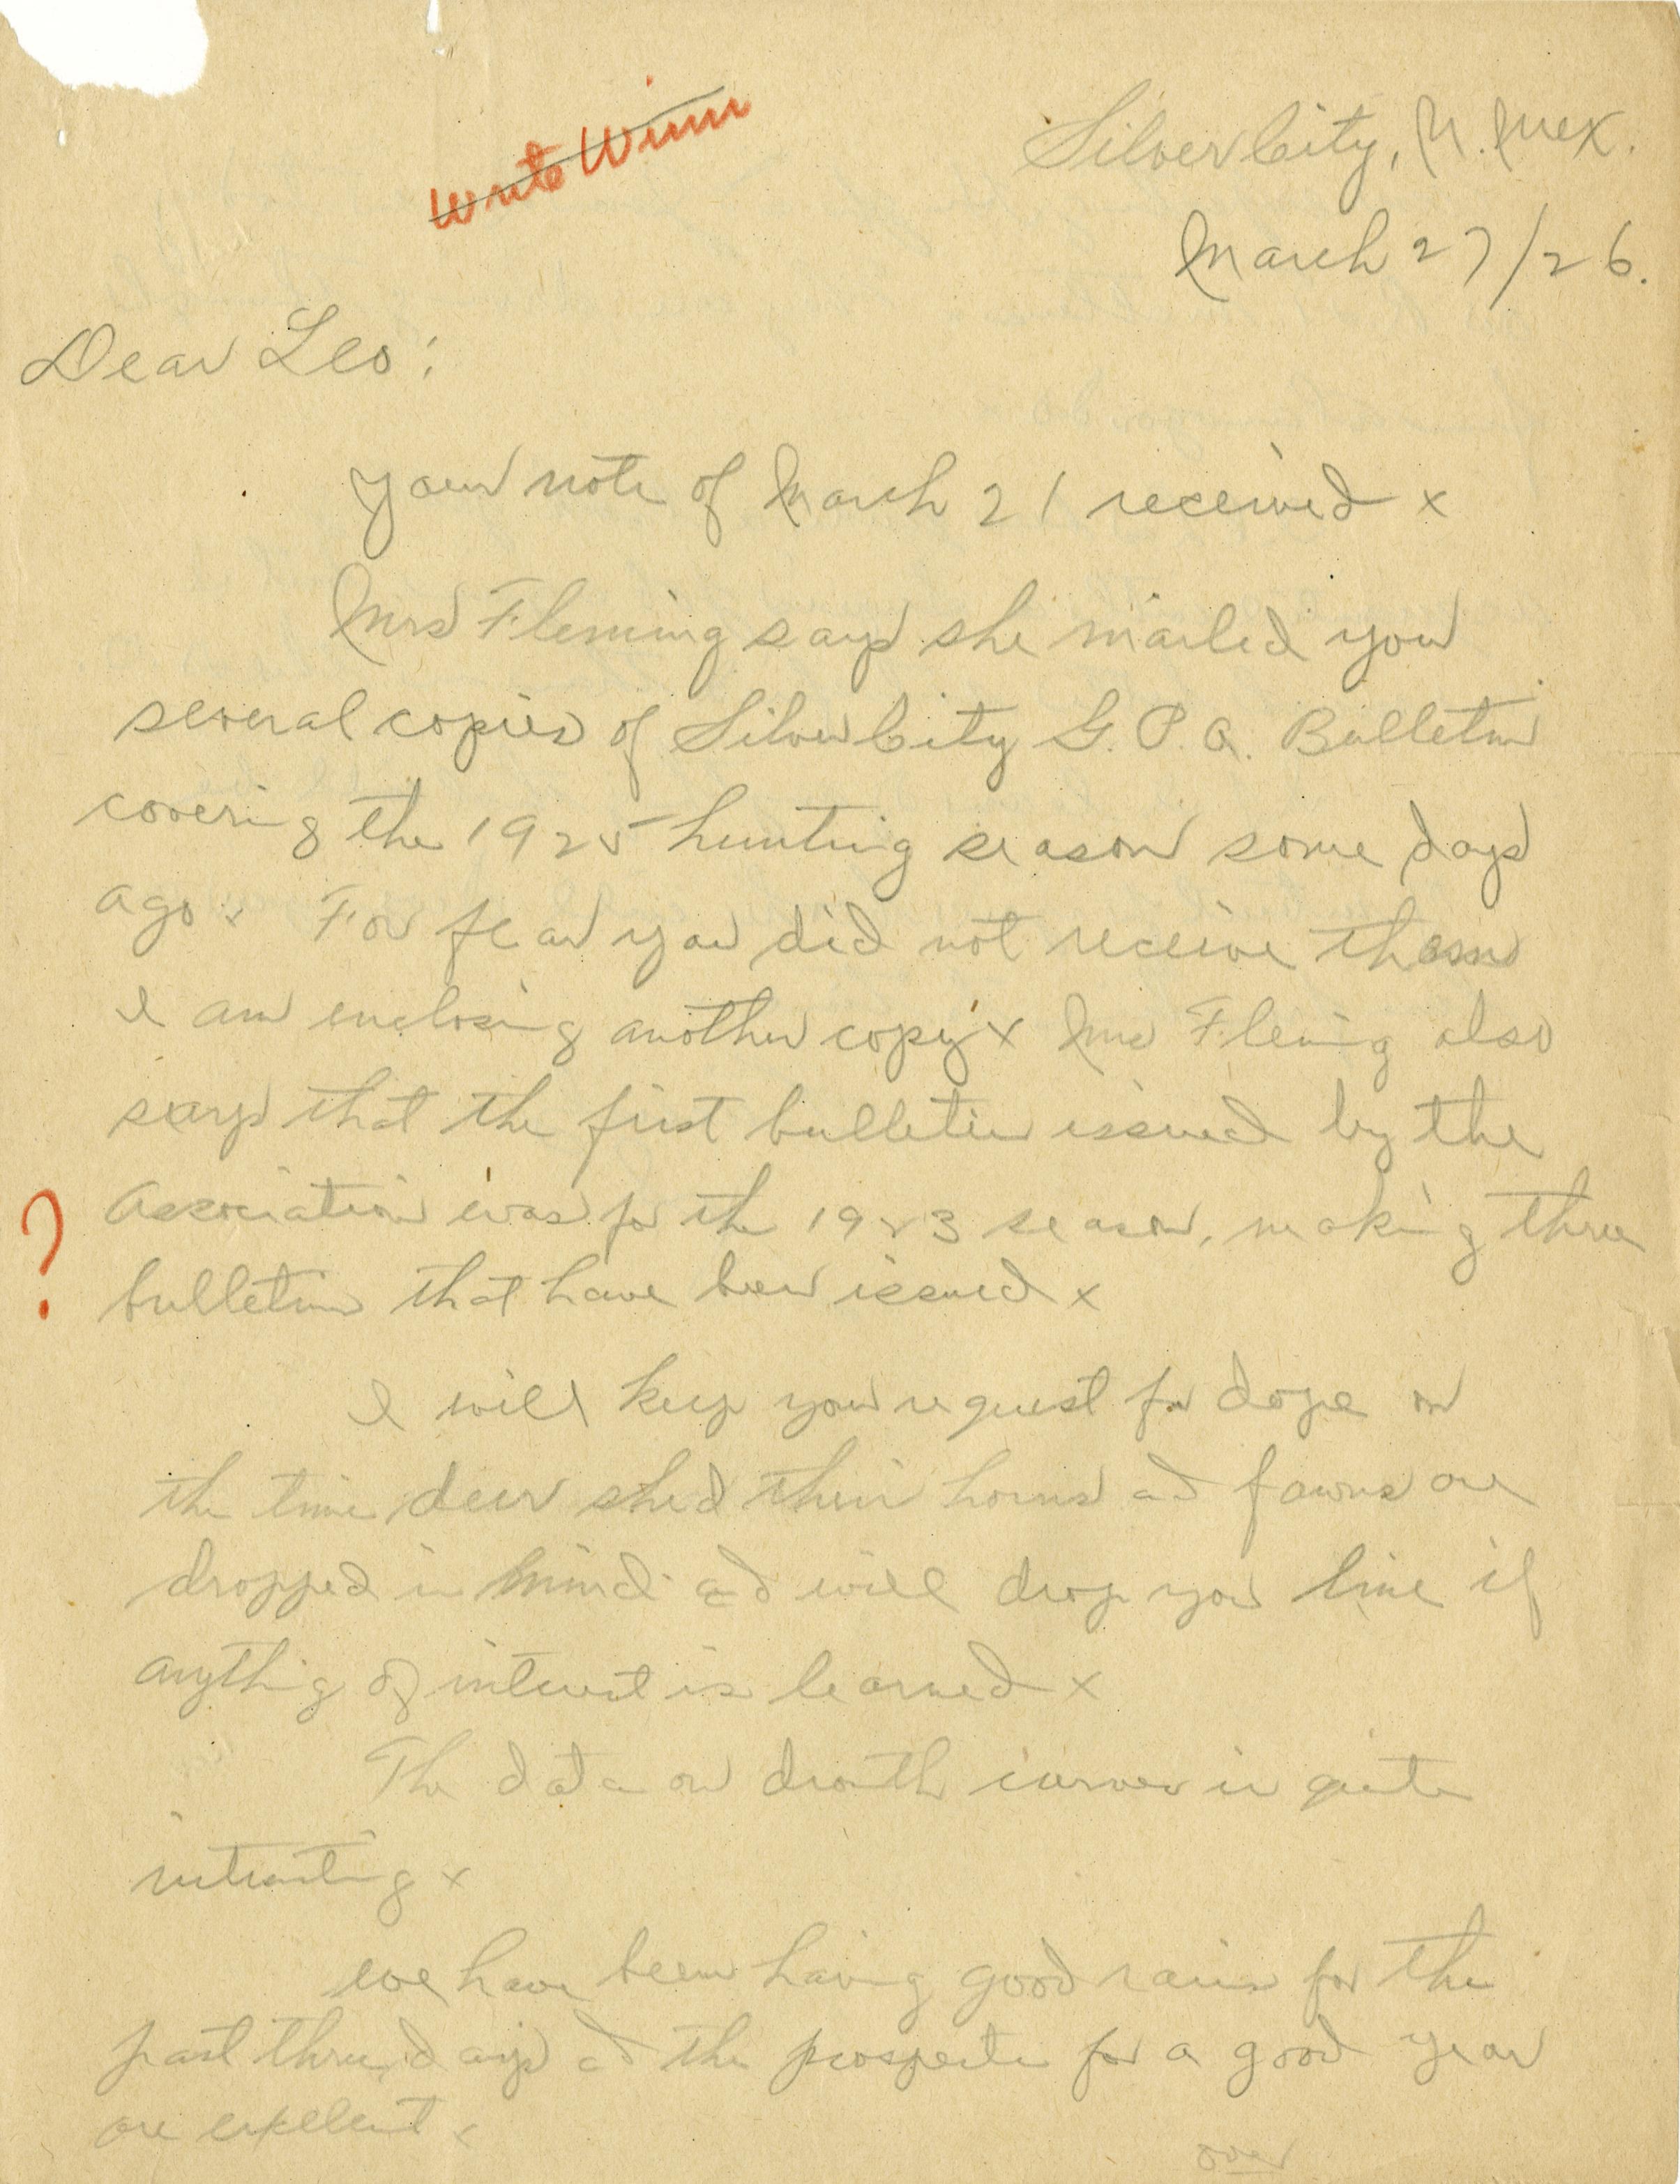 Write Winn
Silver City, N. Mex.
March 27/26.
Dear Leo:
Your note of March 21 received x
Mrs Fleming says she mailed you
several copies of Silver City G.P.A. Bulletin
covering the 1925 hunting season some days
ago x For fear you did not receive them
I am enclosing another copy x Mrs Fleming also
says that the first bulletin issued by the
? Association was for the 1923 season, making three
bulletins that have been issued x
I will keep your request for dope on
the time deer shed their horns and fawns are
dropped in mind and will drop you line if
anything of interest is learned x
The data on drouth curves is quite
interesting x
We have been having good rains for the
past three days and the prospects for a good year
are excellent x
over